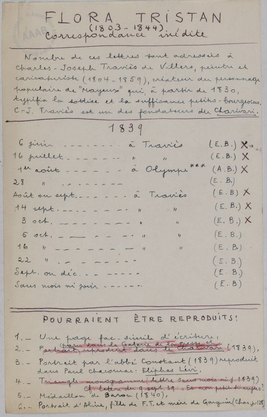 FLORA TRISTAN
(1803-1844)
Correspondance inédite
Nombre de ces lettres sont adressées à
Charles-Joseph Traviès de Villers, peintre et
caricaturiste (1804-1859), créateur du personnage
populaire de "Mayeux" qui à partir de 1830,
typifia la sottise et la suffisance petite-bourgeoise.
C-J. Traviès est un des fondateurs du Charivari.
1839
6 juin - - - - à Traviès (E.B.) X
16 juillet - - - - " " (E.B.) X
1er août - - - - à Olympe*** (A.B.) X
28 " - - - - (E.B.)
Août ou sept. - - - - à Traviès (E.B.) X
14 sept. - - - - " " (E.B.) X
3 oct. - - - - " " (E.B.) X
5 oct. - - - - " " (E.B.)
16 " - - - - " " (E.B.)
22 " - - - - " " (E.B.)
Sept. ou déc. - - - - " " (E.B.)
Sans mois ni jour - - - - " " (E.B.)
POURRAIENT ÊTRE REPRODUITS:
1.- Une page fac-similé d'écriture.
2.- Portrait reproduit dans le (1839)
3.- Portrait par l'abbé Constant (1839) reproduit
dans Paul Chacornac: Eliphas Lévi.
4.-
5.- Médaillon de (1840).
6.- Portrait d'Aline, fille de F.T. et mère de Gauguin